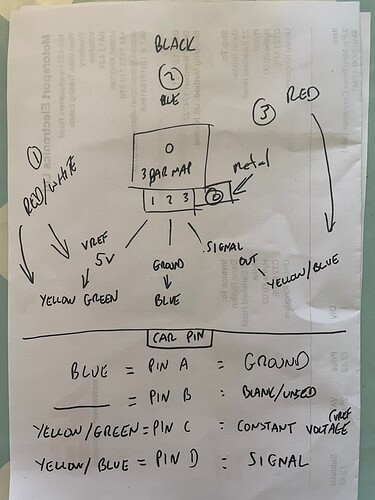 BLACK
2
BLUE
3 RED
1 RED/WHITE
O
3 BAR MAP
1 2 3
metal
VREF
5V
GROUND
SIGNAL
OUT
YELLOW GREEN
BLUE
YELLOW/BLUE
CAR PIN
BLUE = PIN A = GROUND
= PIN B = BLANK/UNSED
YELLOW/GREEN = PIN C = CONSTANT VOLTAGE (VREF
YELLOW/BLUE = PIN D = SIGNAL
Motorsport Electronics L